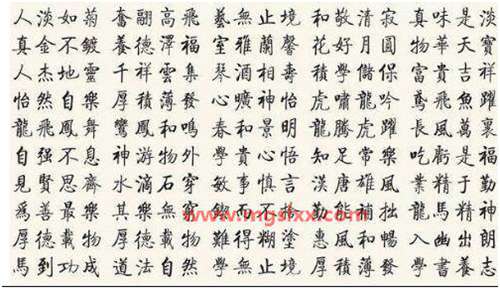 人淡如菊 奮翮高飛 藝無止境 和敬清寂 真味是淡
真金不鍍 養德澤福 室雅蘭馨 花好月圓 物華天寶
人杰地靈 千祥雲集 琴酒相壽 積學儲保 富貴吉祥
怡然自樂 厚積薄發 心曠神怡 虎嘯龍吟 鳶飛魚躍
龍飛鳳舞 鸞鳳和鳴 春和景明 龍騰虎躍 長風萬裏
自强不息 神游物外 學貴心悟 知足常樂 吃虧是福
見賢思齊 水滴石穿 敏事慎言 漢唐雄風 業精于勤
爲善最樂 其樂無窮 而不 勤能補拙 龍馬精神
厚德載物 厚德載物 難得糊塗 惠風和暢 入幽出朗
馬到功成 道法自然 學無止境 厚積薄發 學書養志